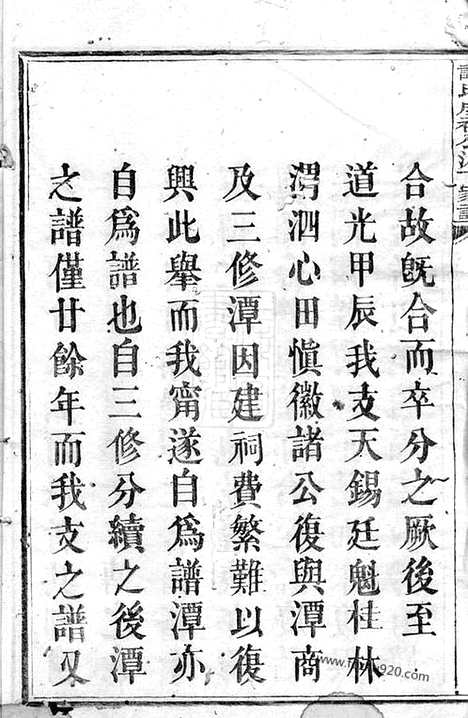 合故旣合而卒分之厥後至
道光甲辰我支天錫廷魁桂林
渭泗心田愼徽諸公復與潭商
及三修潭因建祠費繁難以復
興此舉而我甯遂自爲譜潭亦
自爲譜也自三修分續之後潭
之譜僅廿餘年而我支之譜又